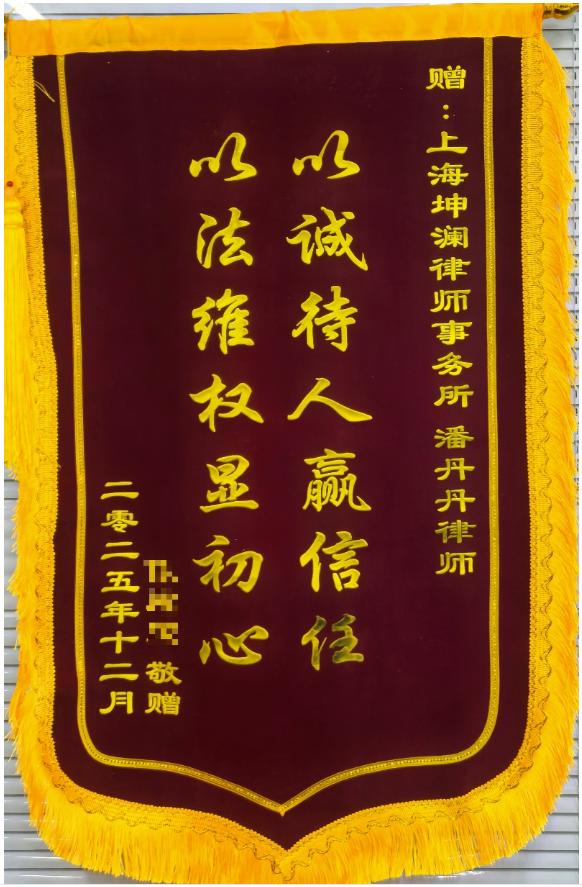 赠：上海坤澜律师事务所 潘丹丹律师
以诚待人赢信任
以法维权显初心
敬赠
二零二五年十二月